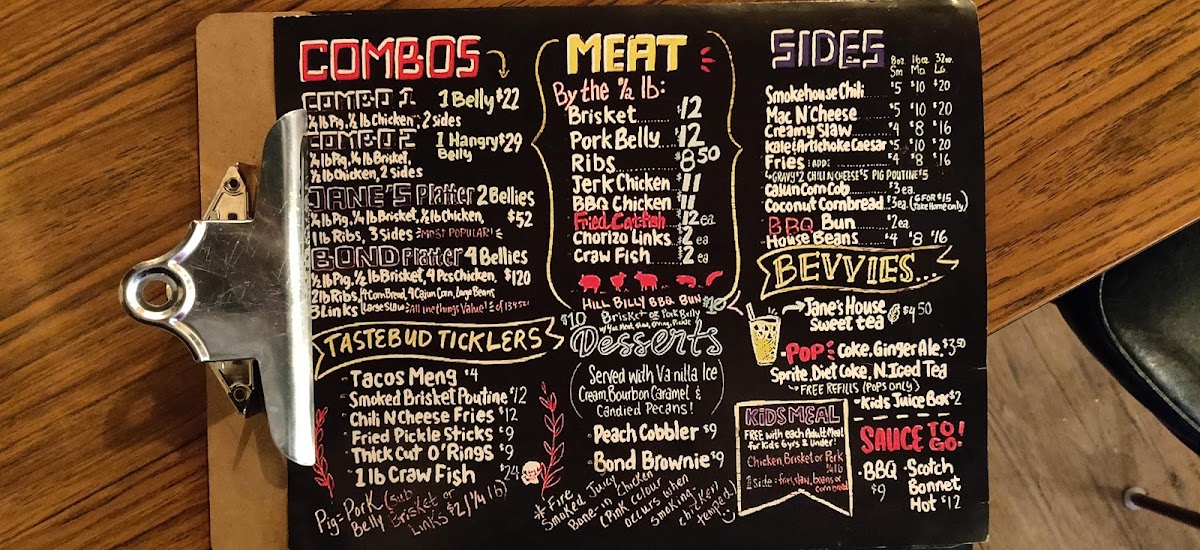 COMBOS
COMBO 1 1 Belly $22
½ lb Pig, ½ lb Chicken, 2 sides
COMBO 2 1 Hangry $29
Belly
½ lb Pig, ¼ lb Brisket,
½ lb Chicken, 2 sides
JANE'S Platter 2 Bellies
¼ lb Brisket, ½ lb Chicken, $52
1 lb Ribs, 3 Sides MOST POPULAR!
BOND Platter 4 Bellies
½ lb Pig, ½ lb Brisket, 4 Pcs Chicken, $120
2 lb Ribs, 4 Corn Bread, 4 Cajun Corn, Large Beans
3 Links Large Slaw
TASTEBUD TICKLERS
- Tacos Meng $4
- Smoked Brisket Poutine $12
- Chili N Cheese Fries $12
- Fried Pickle Sticks $9
- Thick Cut O'Rings $9
- 1 lb Craw Fish $24
Pig = Pork (sub
Belly Brisket or
Links $2 / ¼ lb)
MEAT
By the ½ lb:
Brisket $12
Pork Belly $12
Ribs $8.50
Jerk Chicken $11
BBQ Chicken 11
Fried Catfish $12 ea
Chorizo Links $2 ea
Craw Fish $2 ea
HILL BILLY BBQ BUN $10
$10 Brisket or Pork Belly
Desserts
(Served with Vanilla Ice
Cream, Bourbon Caramel &
Candied Pecans!)
- Peach Cobbler $9
- Bond Brownie $9
* Fire
Smoked Juicy
Bone-in Chicken
(Pink colour
occurs when
smoking
chicken)
temped
SIDES 8oz. 16oz 32oz.
Sm Md LG
Smokehouse Chili $5 $10 $20
Mac N' Cheese $5 $10 $20
Creamy Slaw $4 $8 $16
Kale & Artichoke Caesar $5 $10 $20
Fries : ADD: $4 $8 $16
GRAVY $2 CHILI N CHEESE $5 PIG POUTINE $5
Cajun Corn Cob $3 ea
Coconut Cornbread $3 ea. (6 FOR $15
Take Home only)
BBQ Bun $2 ea
House Beans $4 $8 $16
BEVVIES...
Jane's House $4.50
Sweet tea
POP Coke, Ginger Ale, $3.50
Sprite, Diet Coke, N. Iced Tea
FREE REFILLS (POPS ONLY)
- Kids Juice Box $2
KIDS MEAL
FREE with each Adult Meal
for Kids 6 yrs & Under!
Chicken, Brisket or Pork
¼ lb
1 Side: fries, slaw, beans or
corn bread
SAUCE TO GO!
- BBQ $9
- Scotch
Bonnet
Hot $12